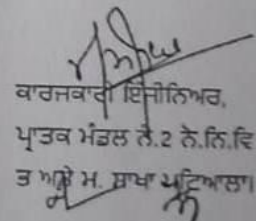 ਕਾਰਜਕਾਰੀ ਇੰਜੀਨਿਅਰ,
ਪ੍ਰਾਤਕ ਮੰਡਲ ਨੰ.2 ਲੋ.ਨਿ.ਵਿ
ਤ ਅਤੇ ਮ. ਸ਼ਾਖਾ ਪਟਿਆਲਾ।